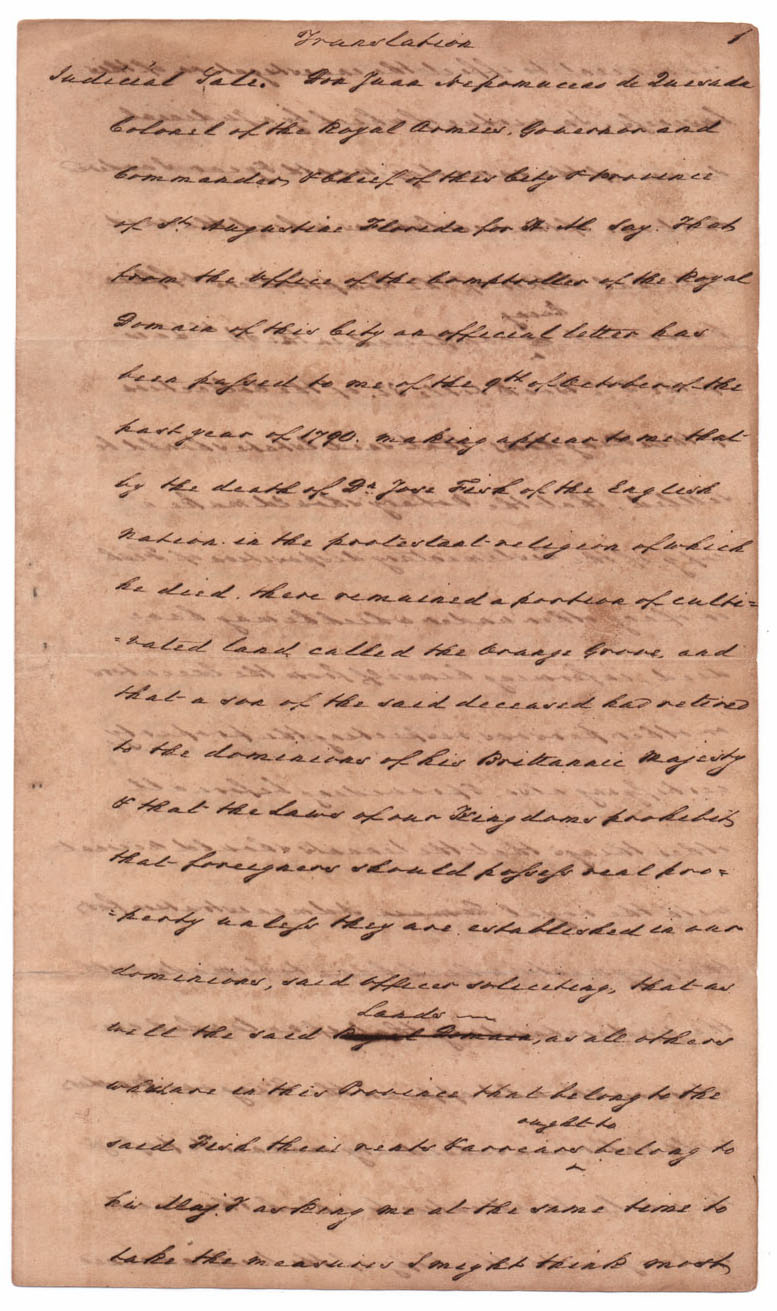 Translation
1
Judicial Sale. Don Juan Nepomuceas de Quesada
Colonel of the Royal Armies. Governor and
Commander, & Chief of this City & Province
of St. Augustine Florida for H. M. Say. That
from the Office of the Comptroller of the Royal
Domain of this City an official letter has
been passed to me of the 9th. of October of the
past year of 1790. making appear to me that
by the death of Dn. Jose Fish of the English
Nation in the protestant religion of which
he died. there remained a portion of culti=
=vated land, called the Orange Grove, and
that a son of the said deceased had retired
to the dominions of his Brittannic Majesty
& that the Laws of our Kingdoms prohibit,
that foreigners should possess real pro=
=perty unless they are established in our
dominions, said officer soliciting, that as
Lands
well the said Royal Domain, as all others
which are in this Province that belong to the
ought to
said Fish their rents & arrears ‸ belong to
his Maj. & asking me at the same time to
take the measures I might think most